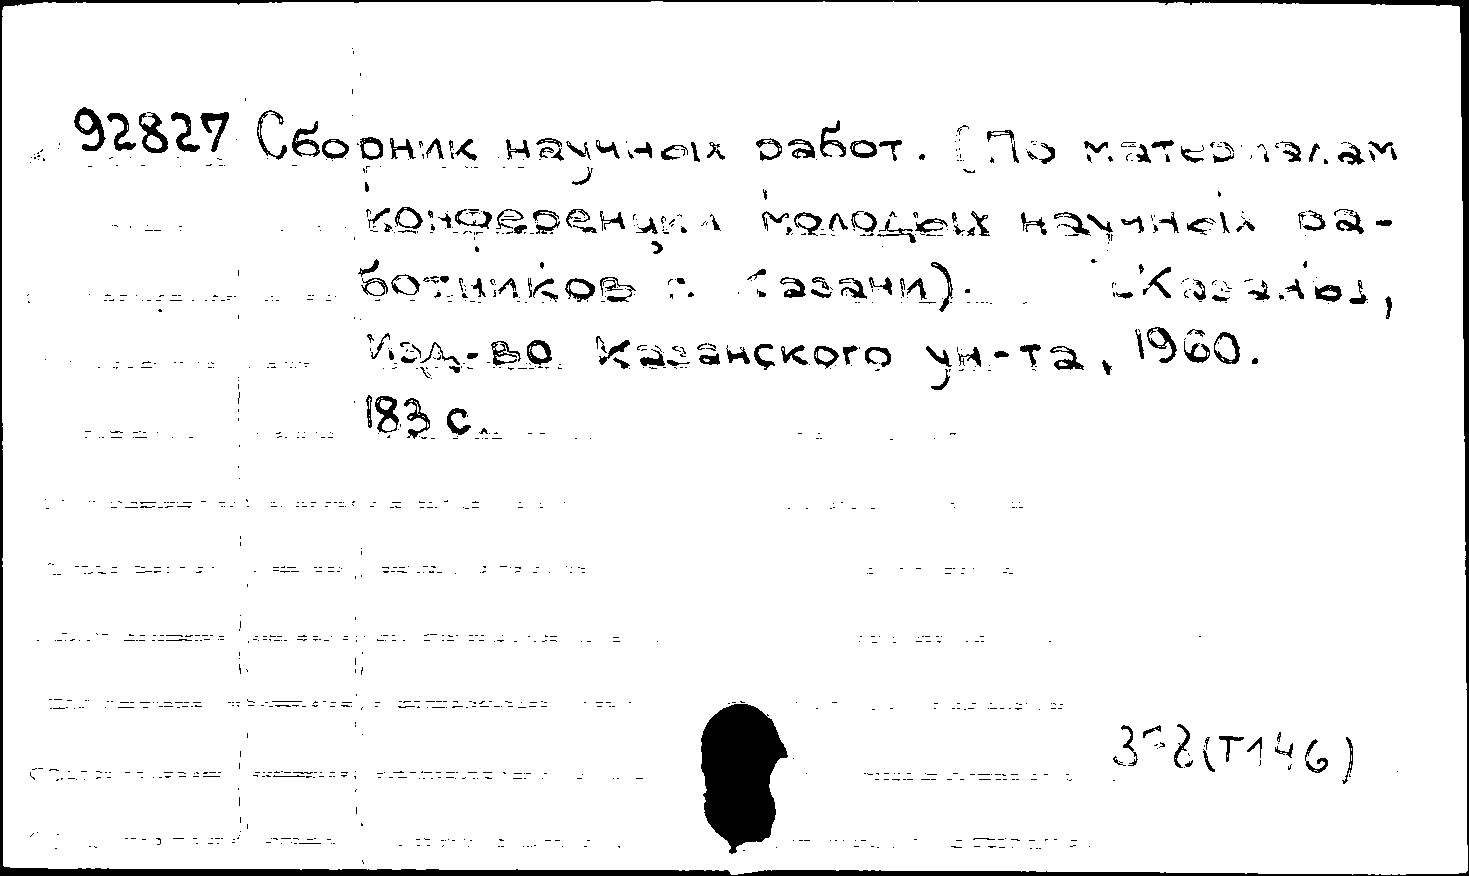 92827 Сборник научных работ. (По материалам
конференции молодых научных ра-
ботников г. Казани). [Казань],
Изд-во Казанского ун-та, 1960.
183 с.
(Т146)